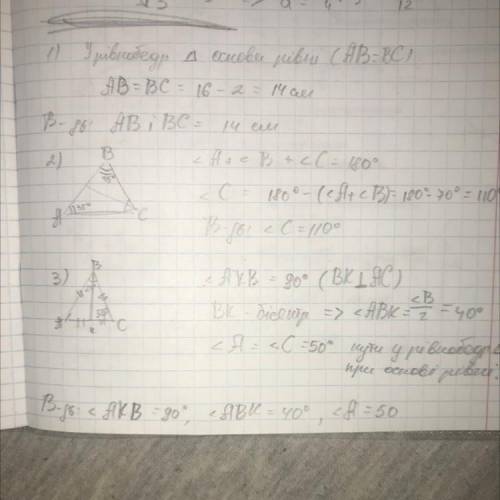 1) У рівнобедр △ основи рівні (AB=BC)
AB = BC = 16 - 2 = 14 см
В-дь: AB і BC = 14 см
2)
B
A
C
<A + <B + <C = 180°
<C = 180° - (<A+<B) = 180° - 70° = 110°
В-дь: <C = 110°
3)
B
C
<AKB = 90° (BK⊥AC)
BK - бісектр => <ABK = <B/2 = 40°
<A = <C = 50° кути у рівнобедр
при основі рівні.
В-дь: <AKB = 90°, <ABK = 40°, <A = 50